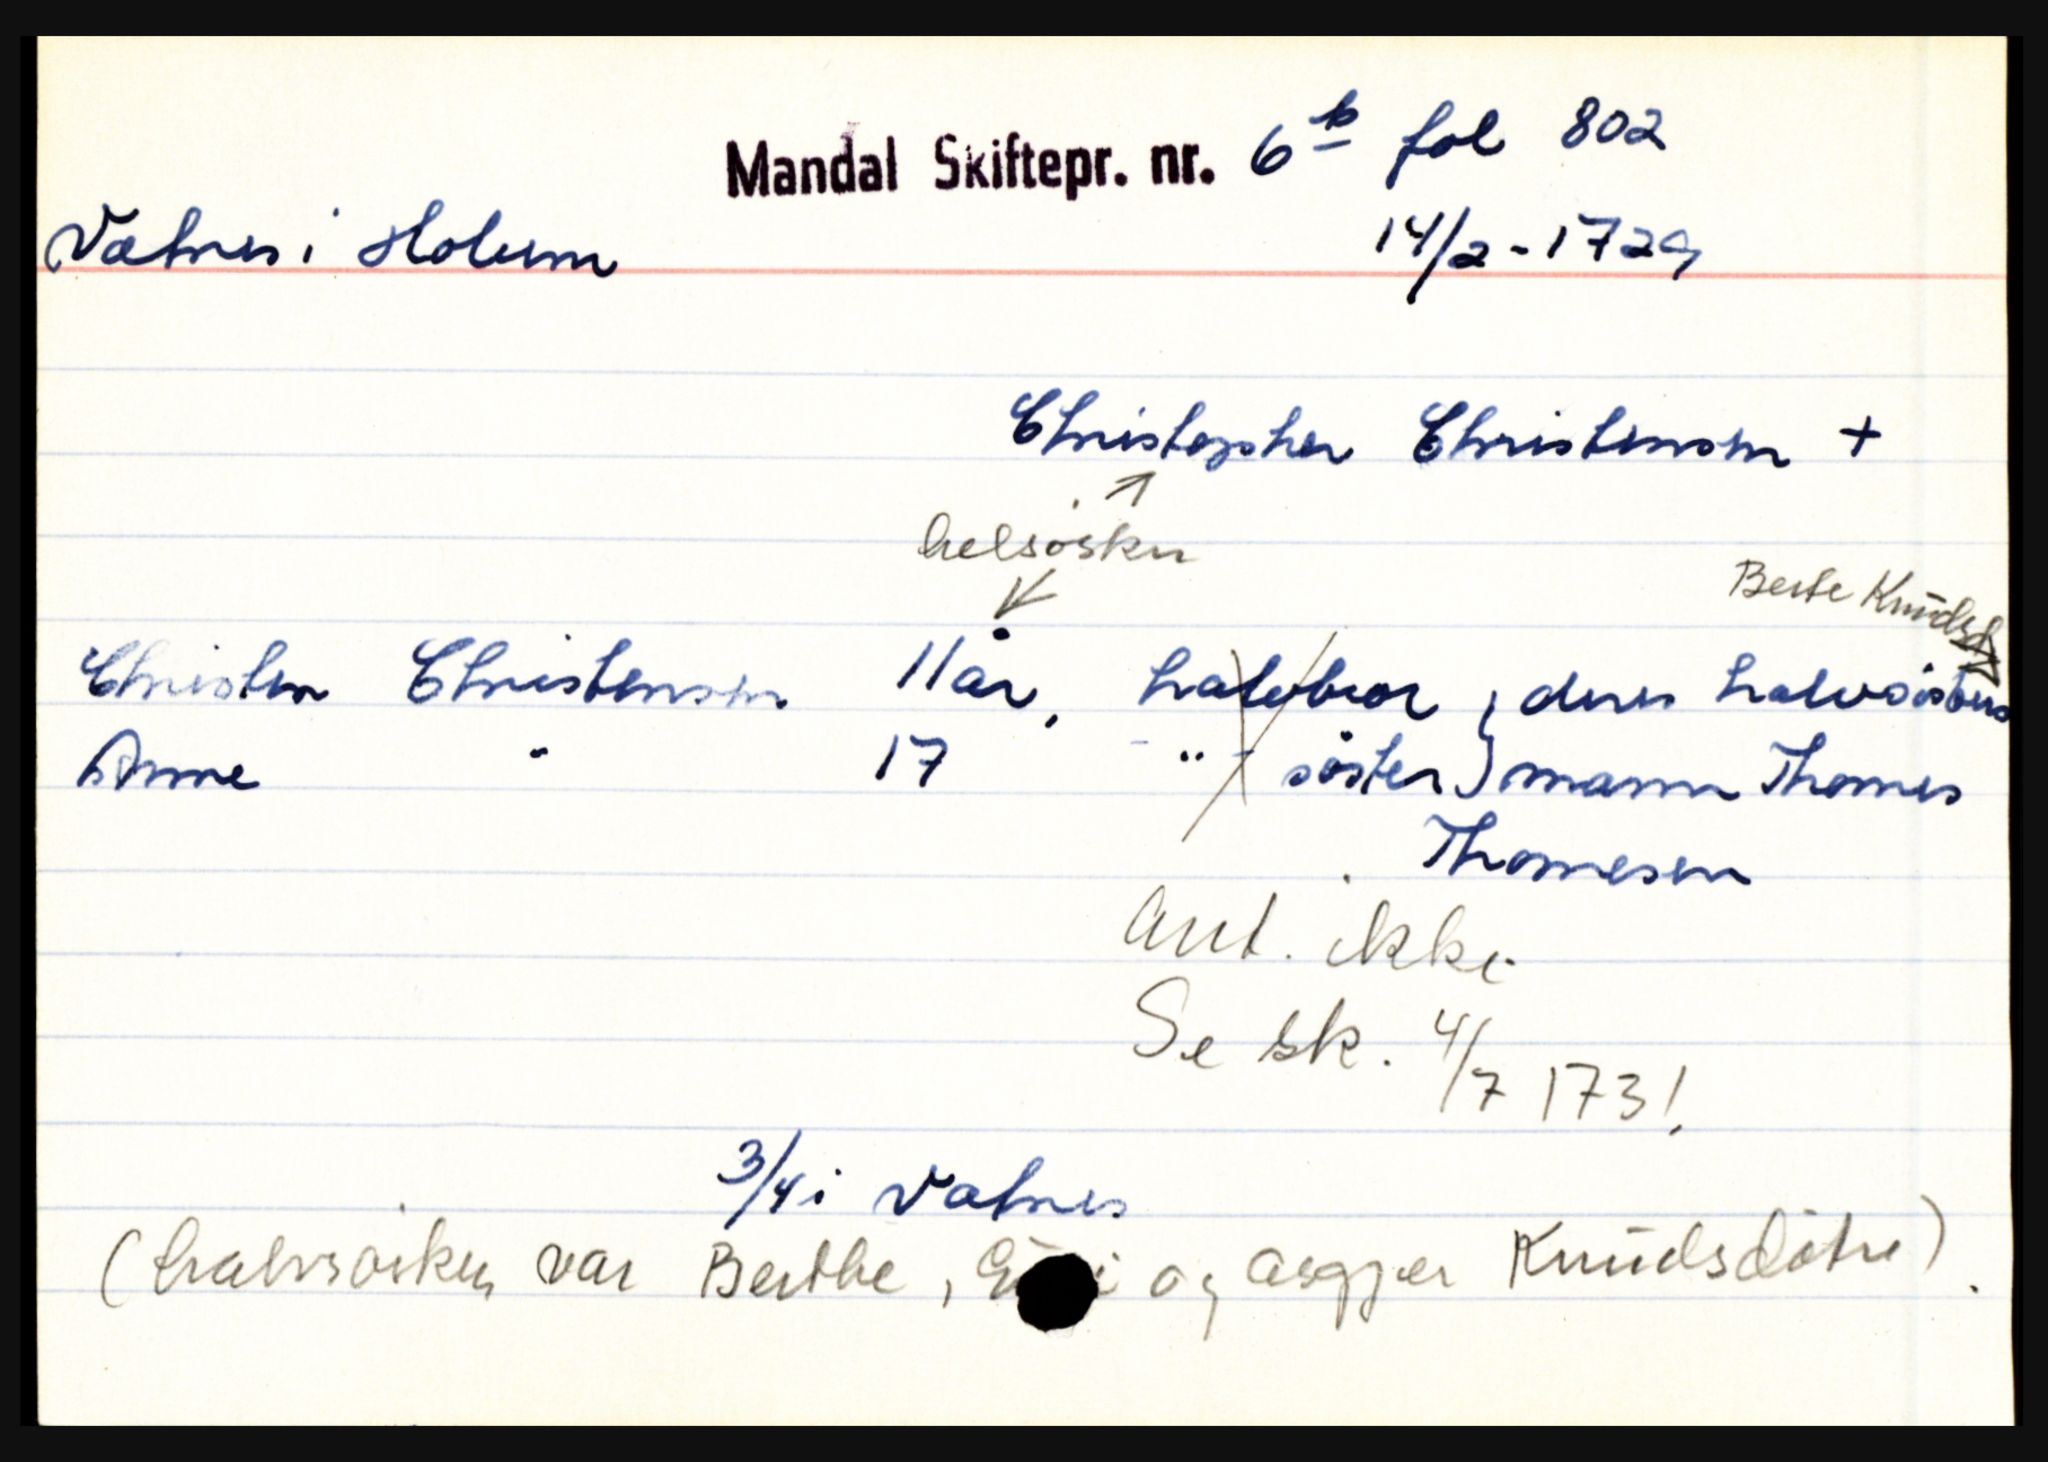 Mandal Skiftepr. nr. 6 b fol 802
Vatnes i Holum 14/2-1729
Christopher Christensen +
helsösken
Berte Knudsd
Christen Christensen 11 år, halvbror } deres halvsösters
Anne " 17 " söster } mann Thomes
Thomesen
Ant. ikke
Se sk. 4/7 1731
3/4 i Vatnes
(halvsösken var Berthe, og Asgjer Knudsdötre).